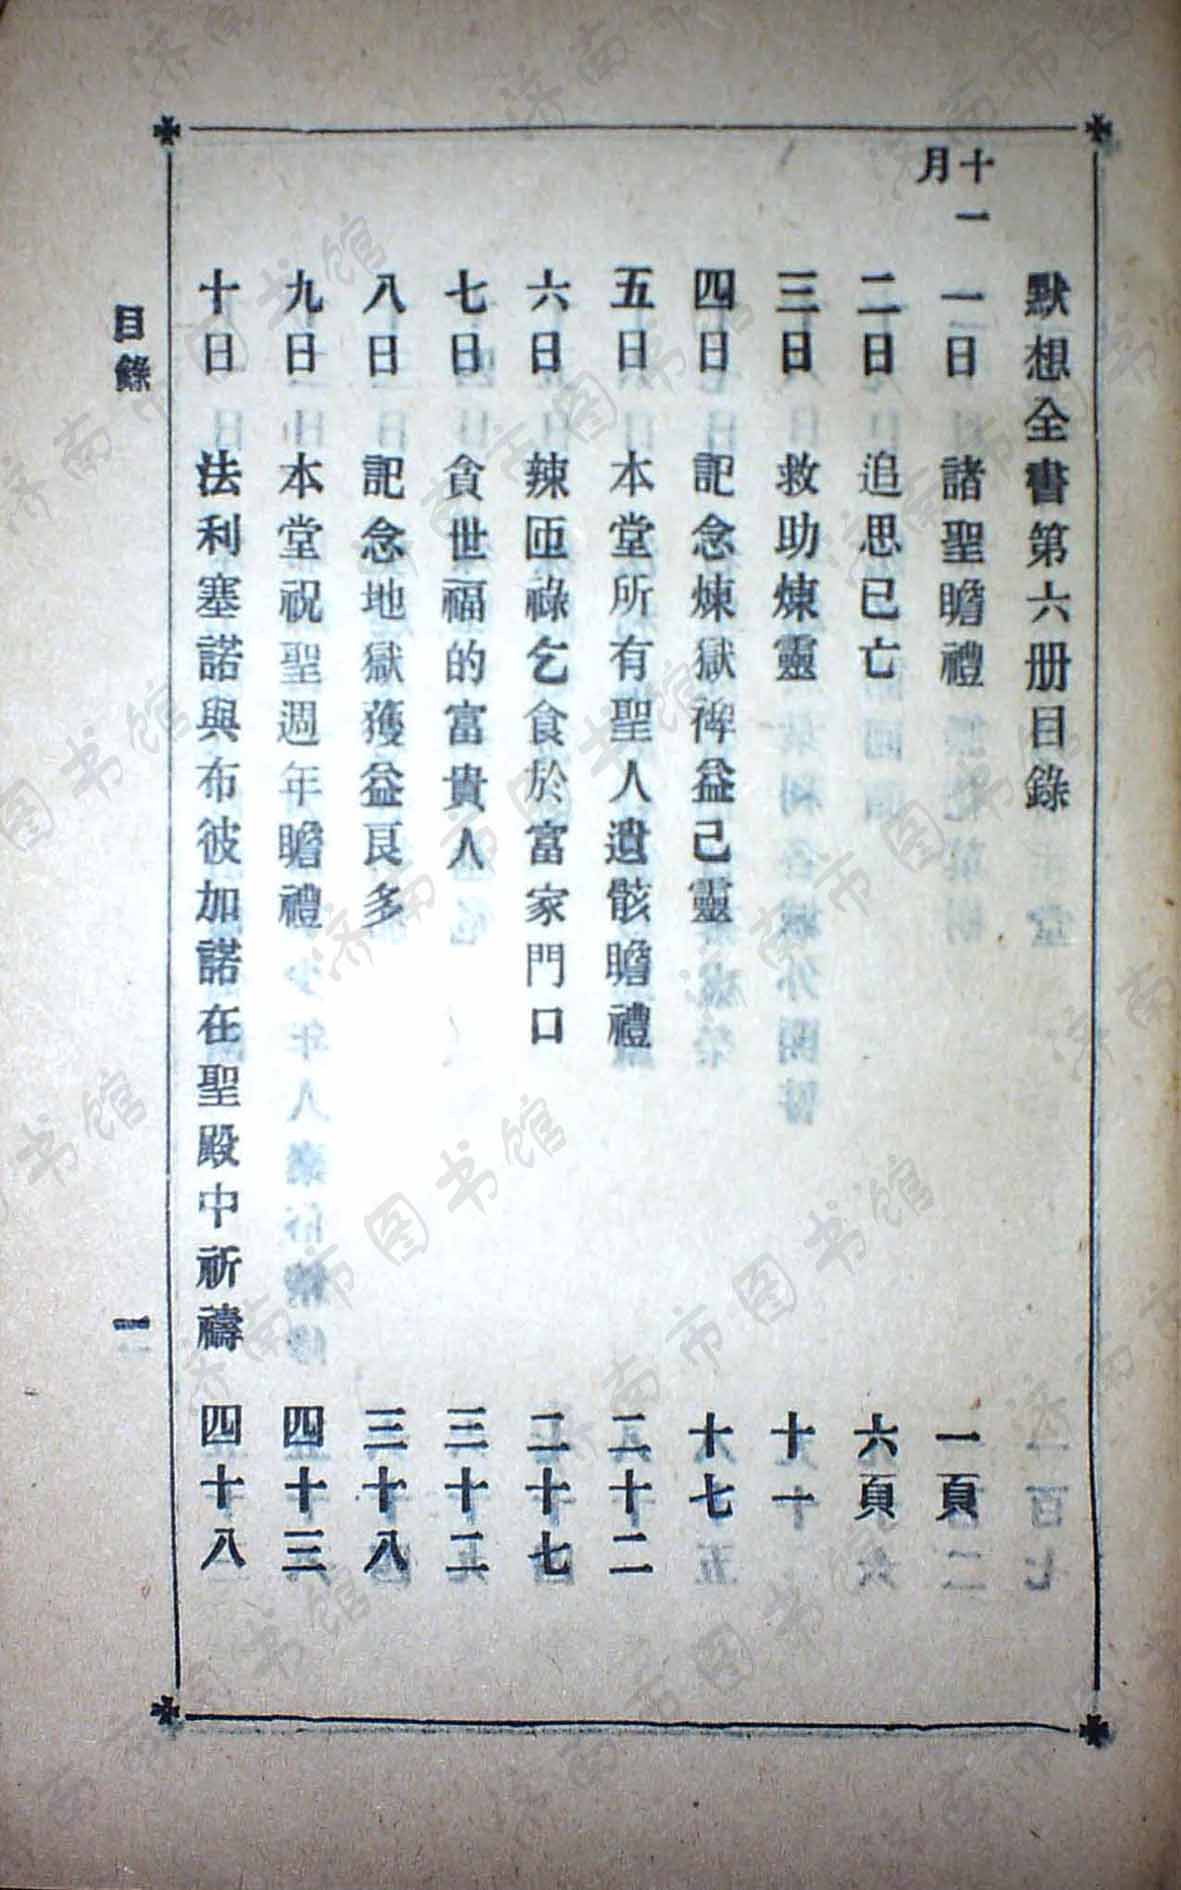 默想全書第六册目錄
十一月
一日 諸聖瞻禮 一頁
二日 追思已亡 六頁
三日 救助煉靈 十一
四日 記念煉獄裨益己靈 十七
五日 本堂所有聖人遺骸瞻禮 二十二
六日 辣匝祿乞食於富家門口 二十七
七日 貪世福的富貴人 三十二
八日 記念地獄獲益良多 三十八
九日 本堂祝聖週年瞻禮 四十三
十日 法利塞諾與布彼加諾在聖殿中祈禱 四十八
目錄
一
济南市图书馆